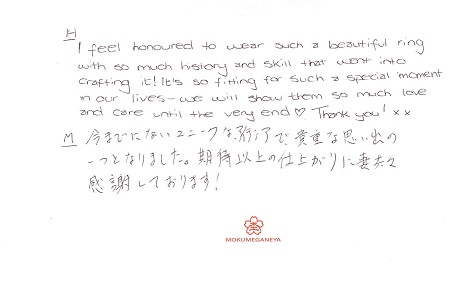 H
I feel honoured to wear such a beautiful ring
with so much history and skill that went into
crafting it! It's so fitting for such a special moment
in our lives - we will show them so much love
and care until the very end♡ Thank you! xx
M 今までにないユニークな形で、貴重な思い出の
一つとなりました。期待以上の仕上がりに妻共々
感謝しております!
MOKUMEGANEYA